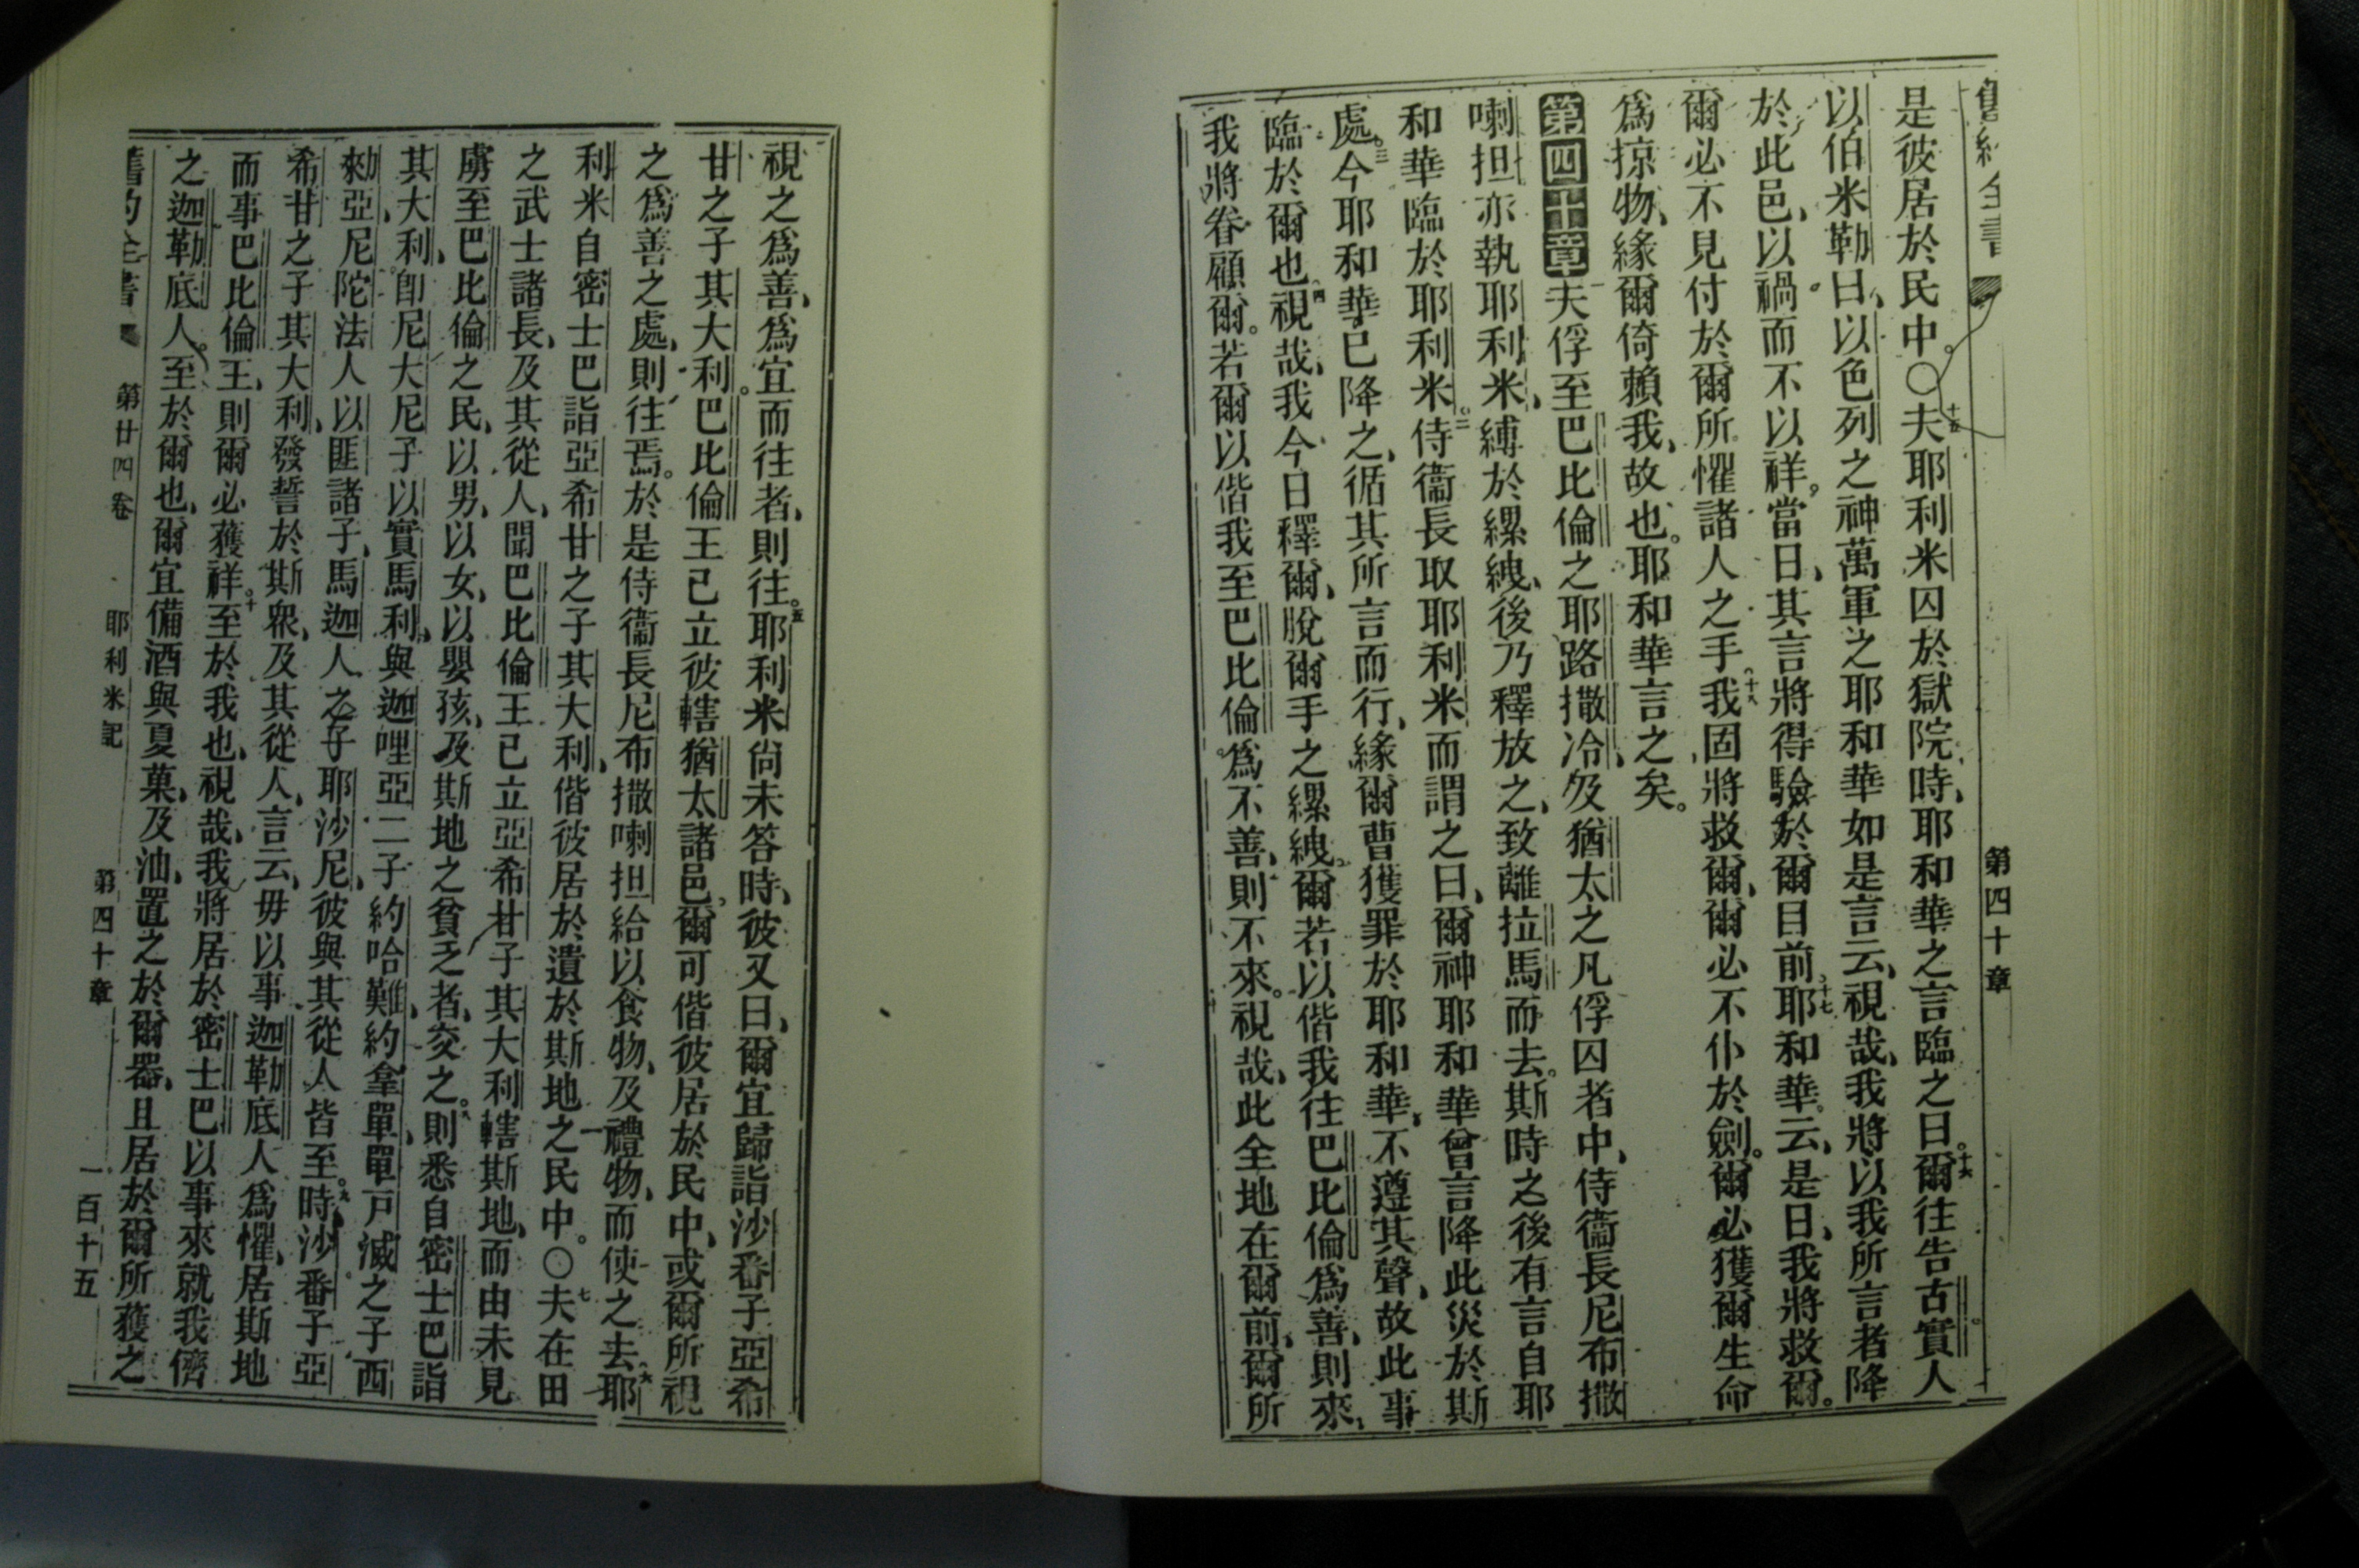 第四十章
是彼居於民中。○十五夫耶利米囚於獄院時、耶和華之言臨之曰。十六爾往告古實人
以伯米勒曰、以色列之神萬軍之耶和華如是言云、視哉、我將以我所言者降
於此邑、以禍而不以祥。當日、其言將得驗於爾目前。十七耶和華云、是日、我將救爾。
爾必不見付於爾所懼諸人之手。十八我固將救爾、爾必不仆於劍。爾必獲爾生命
爲掠物、緣爾倚賴我、故也。耶和華言之矣。
第四十章夫俘至巴比倫之耶路撒冷及猶太之凡俘囚者中、侍衞長尼布撒
喇担亦執耶利米、縛於縲絏、後乃釋放之、致離拉馬而去。斯時之後有言自耶
和華臨於耶利米。二侍衞長取耶利米而謂之曰、爾神耶和華曾言降此災於斯
處。三今耶和華已降之、循其所言而行、緣爾曹獲罪於耶和華、不遵其聲、故此事
臨於爾也。四視哉、我今日釋爾、脫爾手之縲絏。爾若以偕我往巴比倫爲善、則來、
我將眷顧爾。若爾以偕我至巴比倫爲不善、則不來。視哉、此全地在爾前、爾所
視之爲善、爲宜而往者、則往。五耶利米尙未答時、彼又曰、爾宜歸詣沙番子亞希
甘之子其大利。巴比倫王已立彼轄猶太諸邑。爾可偕彼居於民中、或爾所視
之爲善之處、則往焉。於是侍衞長尼布撒喇担給以食物、及禮物、而使之去。六耶
利米自密士巴詣亞希甘之子其大利、偕彼居於遺於斯地之民中。○七夫在田
之武士諸長、及其從人、聞巴比倫王已立亞希甘子其大利轄斯地、而由未見
虜至巴比倫之民、以男、以女、以嬰孩、及斯地之貧乏者、交之。八則悉自密士巴詣
其大利、卽尼大尼子以實馬利、與迦哩亞二子約哈難、約拿單、單戸滅之子西
勑亞、尼陀法人以匪諸子、馬迦人之子耶沙尼、彼與其從人皆至。九時、沙番子亞
希甘之子其大利、發誓於斯衆、及其從人、言云、毋以事迦勒底人爲懼、居斯地
而事巴比倫王、則爾必獲祥。十至於我也、視哉、我將居於密士巴以事來就我儕
之迦勒底人。至於爾也、爾宜備酒與夏菓、及油、置之於爾器、且居於爾所獲之
舊約全書 第廿四卷 耶利米記 第四十章 一百十五